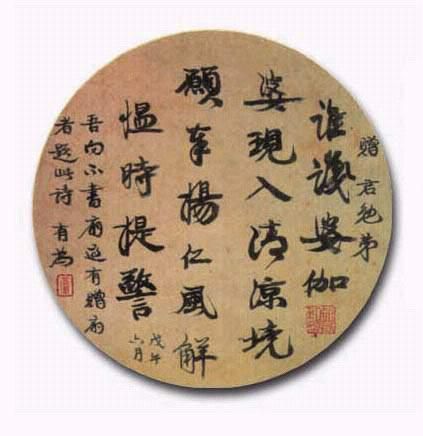 贈君勉弟
誰識婆伽
婆現入清涼境
願奉揚仁風解
愠時提警
戊午
六月
吾向不書扇近有贈扇
者題此詩 有為